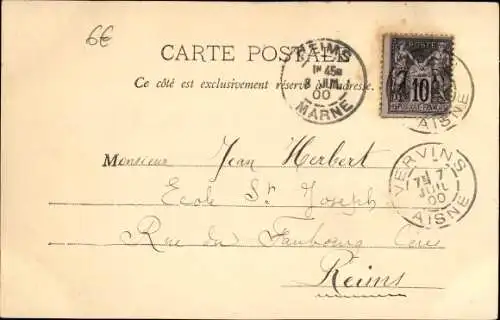 6€
CARTE POSTALE
Ce côté est exclusivement réservé à l'adresse.
REIMS
8 JUIL
00
MARNE
POSTE
10
AISNE
VERVINS
7
JUIL
00
AISNE
Monsieur Jean Herbert
Ecole St Joseph
Rue du Faubourg Ceres
Reims